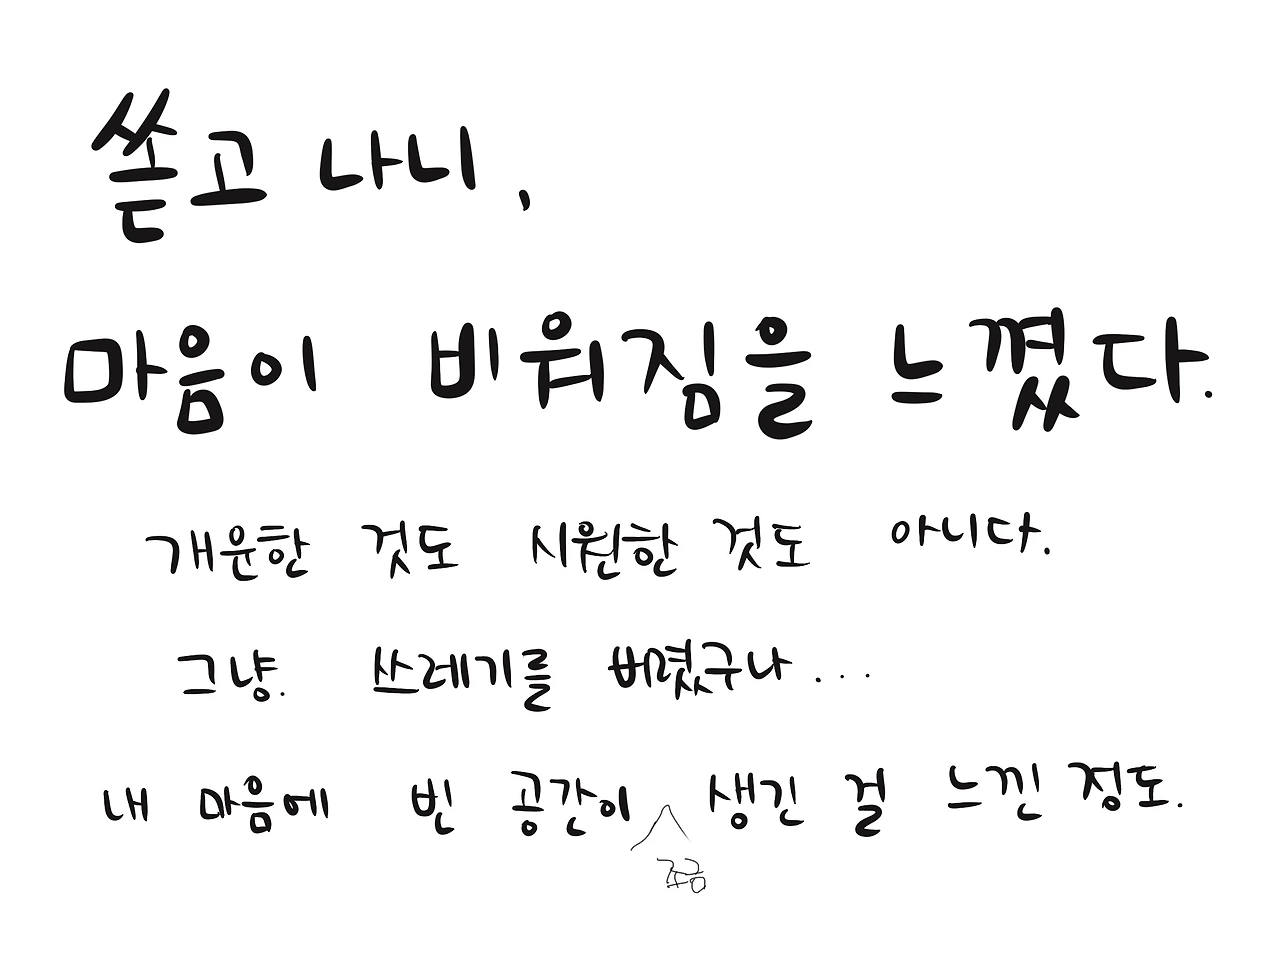 쏟고 나니,
마음이 비워짐을 느꼈다.
개운한 것도 시원한 것도 아니다.
그냥. 쓰레기를 버렸구나...
내 마음에 빈 공간이 생긴 걸 느낀 정도.
조금